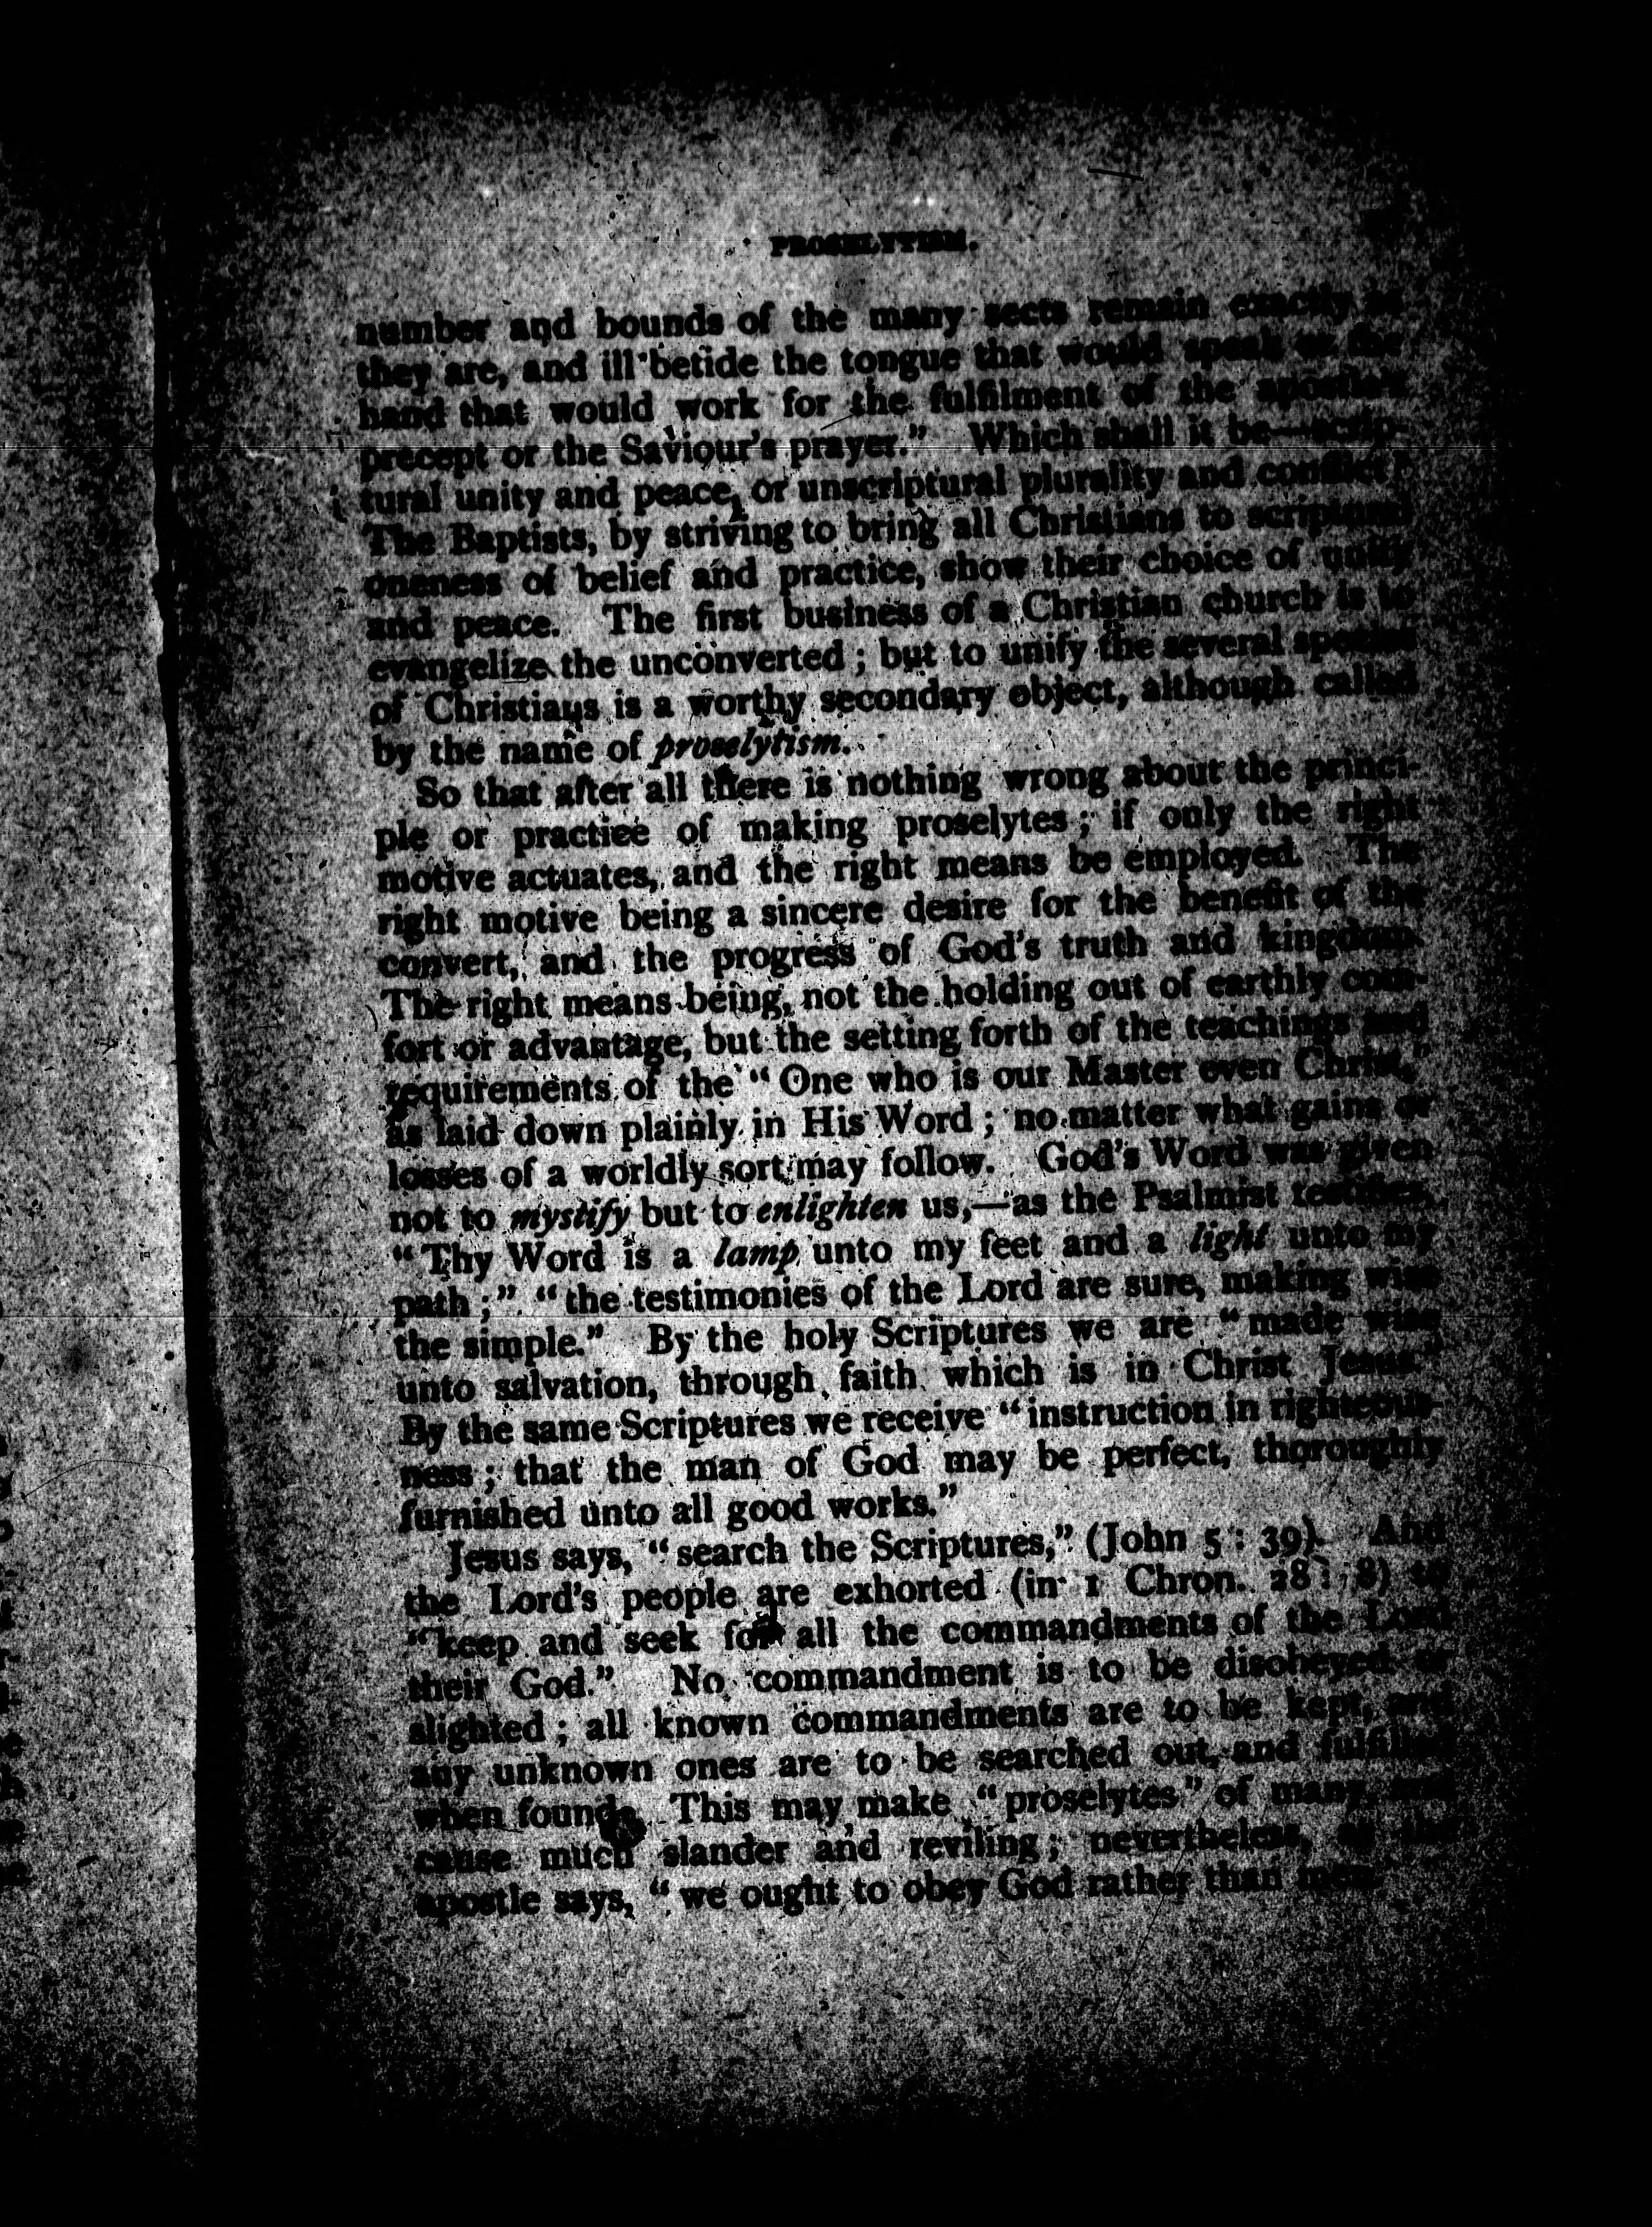 PROSELYTISM.
number and bounds of the many sects remain exactly as
they are, and ill betide the tongue that would speak or the
hand that would work for the fulfilment of the apostle's
precept or the Saviour's prayer." Which shall it be—scrip-
tural unity and peace, or unscriptural plurality and conflict?
The Baptists, by striving to bring all Christians to scriptural
oneness of belief and practice, show their choice of unity
and peace. The first business of a Christian church is to
evangelize the unconverted; but to unify the several species
of Christians is a worthy secondary object, although called
by the name of proselytism.
So that after all there is nothing wrong about the princi-
ple or practice of making proselytes; if only the right
motive actuates, and the right means be employed. The
right motive being a sincere desire for the benefit of the
convert, and the progress of God's truth and kingdom.
The right means being, not the holding out of earthly com-
fort or advantage, but the setting forth of the teachings and
requirements of the "One who is our Master even Christ,"
as laid down plainly in His Word; no matter what gains or
losses of a worldly sort may follow. God's Word was given
not to mystify but to enlighten us,—as the Psalmist testifies,
"Thy Word is a lamp unto my feet and a light unto my
path;" "the testimonies of the Lord are sure, making wise
the simple." By the holy Scriptures we are "made wise
unto salvation, through faith which is in Christ Jesus."
By the same Scriptures we receive "instruction in righteous-
ness; that the man of God may be perfect, thoroughly
furnished unto all good works."
Jesus says, "search the Scriptures," (John 5: 39). And
the Lord's people are exhorted (in 1 Chron. 28: 8) to
"keep and seek for all the commandments of the Lord
their God." No commandment is to be disobeyed or
slighted; all known commandments are to be kept, and
any unknown ones are to be searched out, and fulfilled
when found. This may make "proselytes" of many, and
cause much slander and reviling; nevertheless, as the
apostle says, "we ought to obey God rather than men.